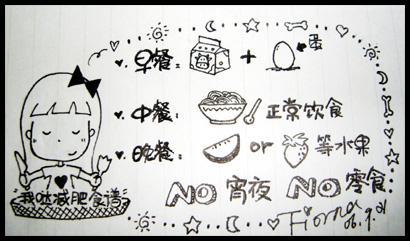 早餐： + 蛋
中餐： 正常饮食
晚餐： or 等水果
NO 宵夜 NO 零食
我哒减肥食谱
Fiona